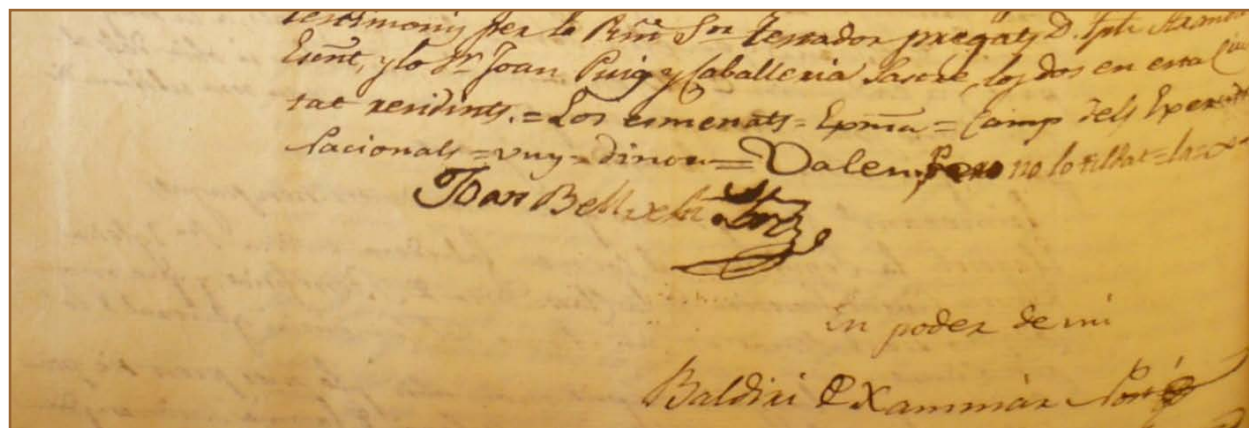 testimonis per lo Rñt Sor Testador pregats D. Jph Ramon
Eunt, y lo Sr. Joan Puig y Caballeria Sastre, los dos en esta Ciu
tat residints. = Los esmenats = Exma = Camp dels Exer
nacionals = vuy = dinou = Valen. Pero no lo tillat = la =
Joan Bell
En poder de mi
Baldiri Xammar Notᵒ